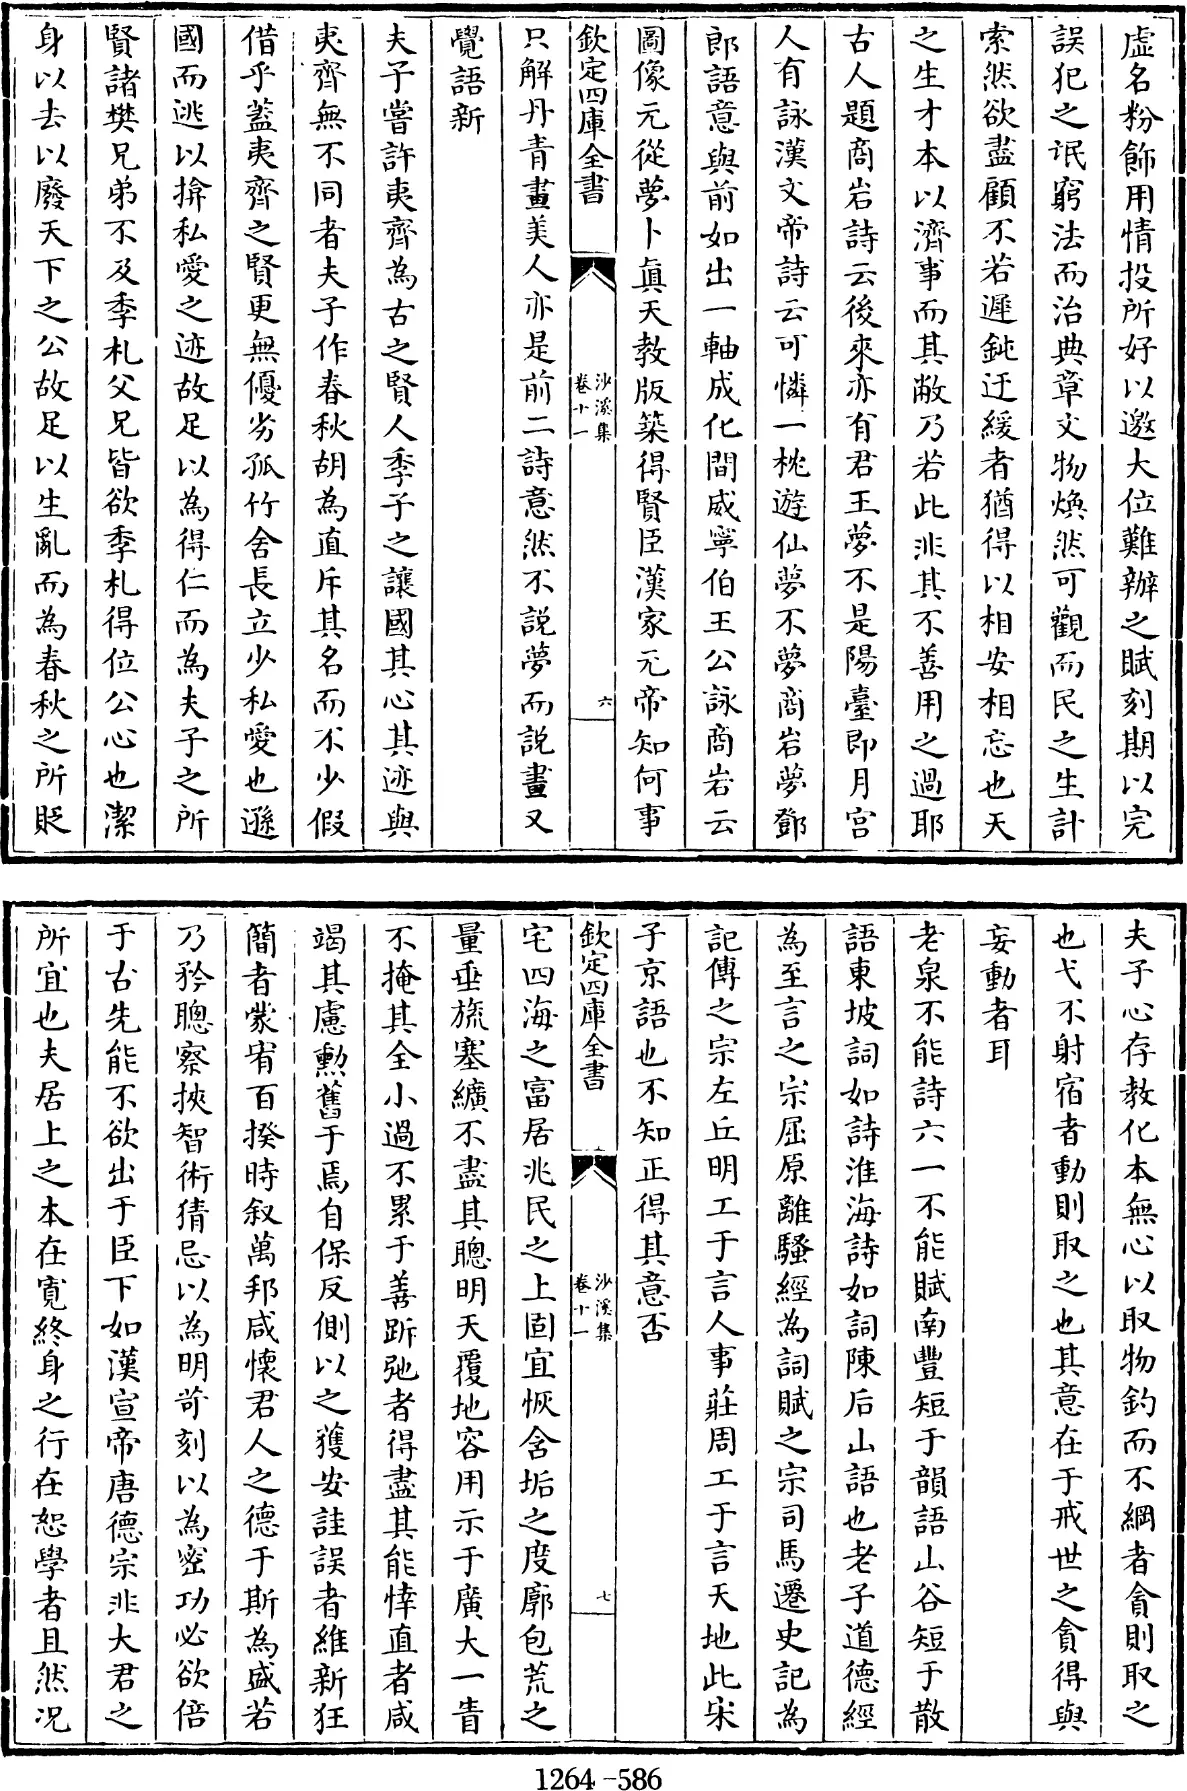 虛名粉飾用情投所好以邀大位難辦之賦刻期以完
誤犯之氓窮法而治典章文物煥然可觀而民之生計
索然欲盡顧不若遲鈍迂緩者猶得以相安相忘也天
之生才本以濟事而其敝乃若此非其不善用之過耶
古人題商岩詩云後來亦有君王夢不是陽臺即月宮
人有詠漢文帝詩云可憐一枕遊仙夢不夢商岩夢鄧
郎語意與前如出一軸成化間威寧伯王公詠商岩云
圖像元從夢卜真天教版築得賢臣漢家元帝知何事
欽定四庫全書
沙溪集
卷十一
六
只解丹青畫美人亦是前二詩意然不説夢而説畫又
覺語新
夫子嘗許夷齊為古之賢人季子之讓國其心其迹與
夷齊無不同者夫子作春秋胡為直斥其名而不少假
借乎蓋夷齊之賢更無優劣孤竹舍長立少私愛也遜
國而逃以揜私愛之迹故足以為得仁而為夫子之所
賢諸樊兄弟不及季札父兄皆欲季札得位公心也潔
身以去以廢天下之公故足以生亂而為春秋之所貶
夫子心存教化本無心以取物釣而不綱者貪則取之
也弋不射宿者動則取之也其意在于戒世之貪得與
妄動者耳
老泉不能詩六一不能賦南豐短于韻語山谷短于散
語東坡詞如詩淮海詩如詞陳后山語也老子道德經
為至言之宗屈原離騷經為詞賦之宗司馬遷史記為
記傳之宗左丘明工于言人事莊周工于言天地此宋
子京語也不知正得其意否
欽定四庫全書
沙溪集
卷十一
七
宅四海之富居兆民之上固宜恢含垢之度廓包荒之
量垂旒塞纊不盡其聰明天覆地容用示于廣大一眚
不掩其全小過不累于善跅弛者得盡其能悻直者咸
竭其慮勲舊于焉自保反側以之獲安詿誤者維新狂
簡者蒙宥百揆時叙萬邦咸懷君人之德于斯為盛若
乃矜聰察挾智術猜忌以為明苛刻以為密功必欲倍
于古先能不欲出于臣下如漢宣帝唐德宗非大君之
所宜也夫居上之本在寛終身之行在恕學者且然况
1264-586